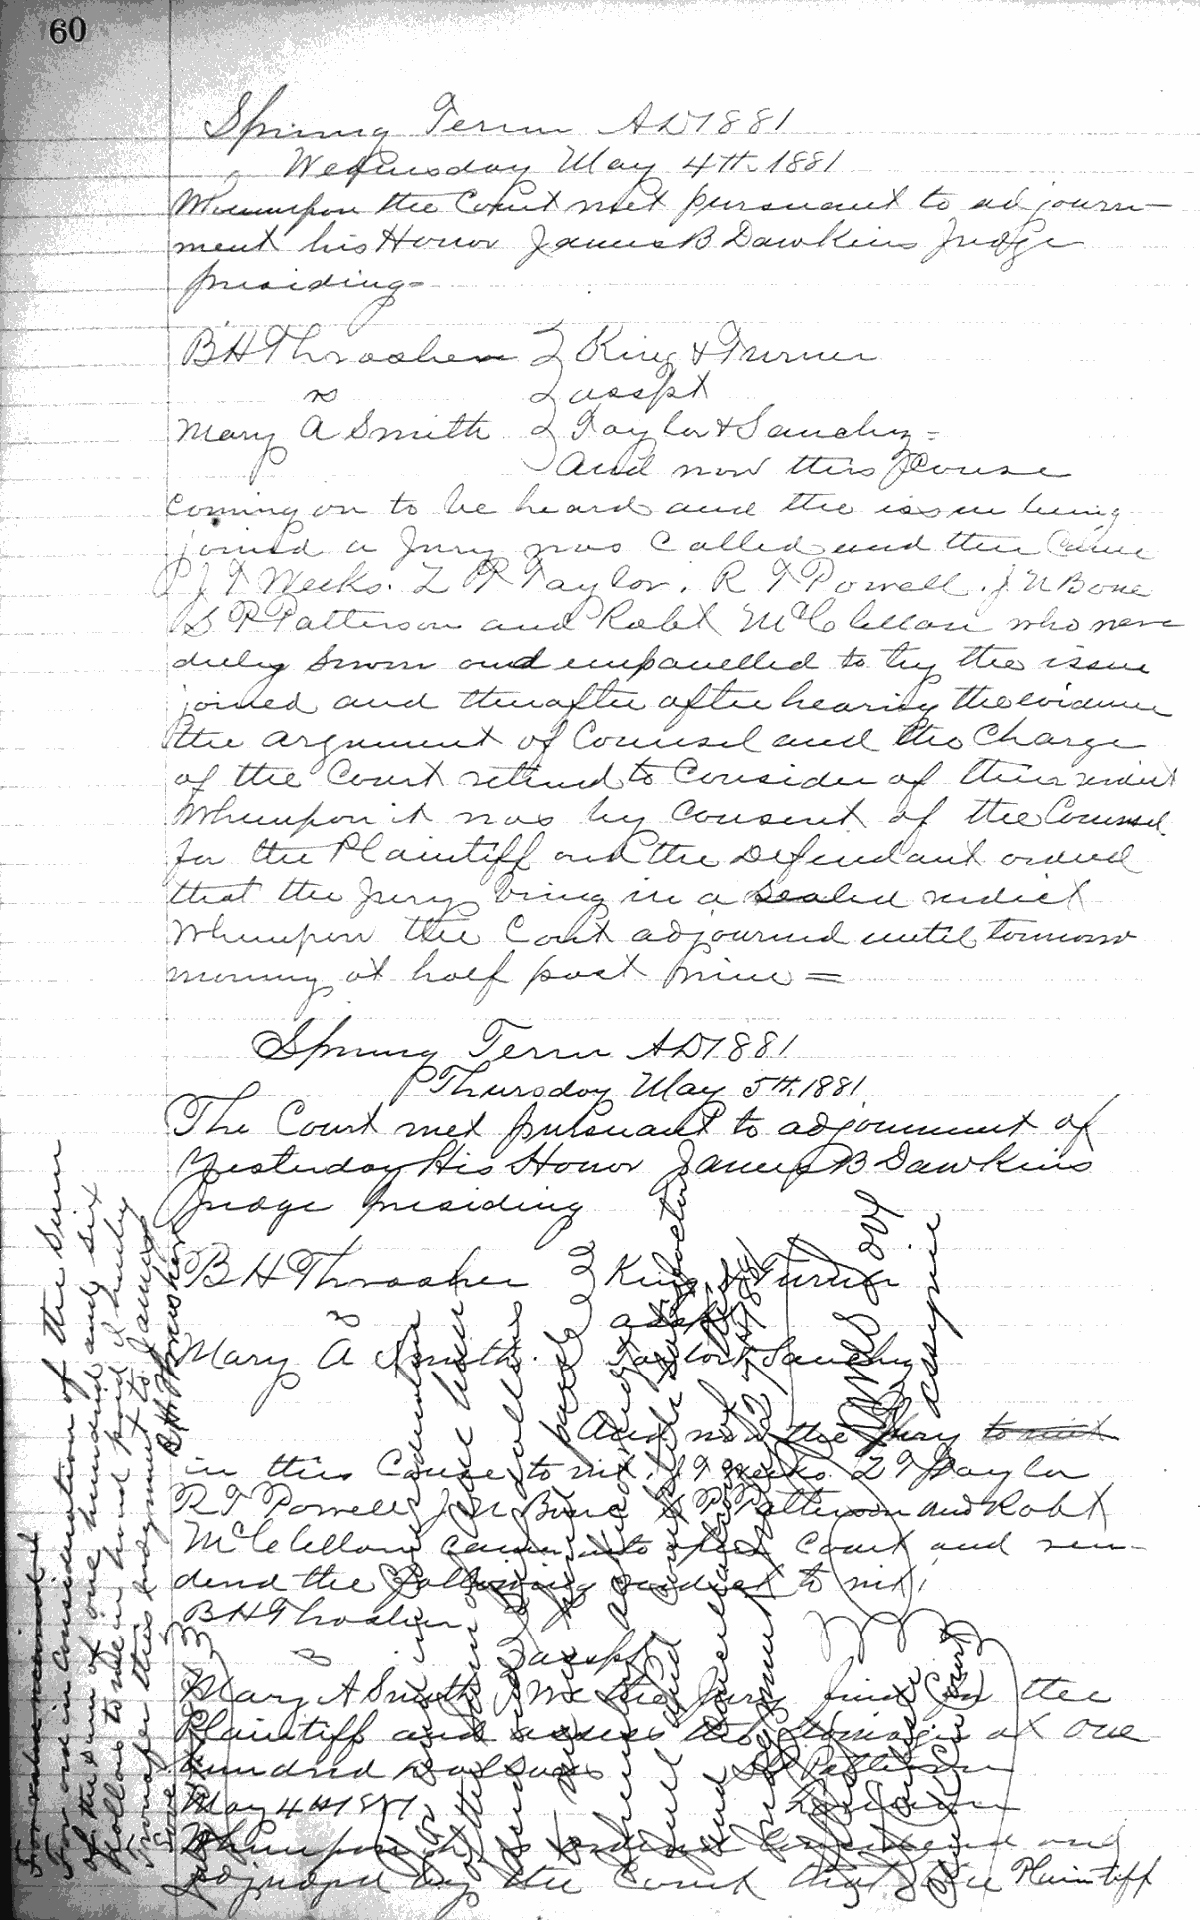 60
Spring Term AD 1881
Wednesday May 4th 1881
Whereupon the Court met pursuant to adjourn-
ment his Honor James B Dawkins Judge
presiding-
B H Thrasher } King & Turner
vs } asspt
Mary A Smith } Taylor & Sanchez =
And now this Cause
coming on to be heard and the issue being
joined a Jury was Called and then Came
J T Weeks. L T Taylor. R T Powell. J N Bone
S P Patterson and Robt McClellan who were
duly sworn and empanelled to try the issue
joined and thereafter after hearing the evidence
the argument of Counsel and the Charge
of the Court retired to Consider of their verdict
Whereupon it was by consent of the Counsel
for the Plaintiff and the Defendant ordered
that the Jury bring in a sealed verdict
Whereupon the Court adjourned until tomorrow
morning at half past nine =
Spring Term AD 1881
Thursday May 5th 1881
The Court met pursuant to adjournment of
Yesterday His Honor James B Dawkins
Judge presiding
B H Thrasher } King & Turner
vs asspt
Mary A Smith. Taylor & Sanchez
And now the Jury to wit
in this Cause to wit. J T Weeks. L T Taylor
R T Powell J N Bone S P Patterson and Robt
McClellan came into open Court and ren-
dered the following verdict to wit;
B H Thrasher
vs asspt
Mary A Smith We the Jury find for the
Plaintiff and assess the damages at One
hundred Dollars S P Patterson
May 4th 1881 Foreman
Whereupon it is ordered Considered and
adjudged by the Court that the Plaintiff
For value received
For and in Consideration of the Sum
of the sum of one hundred and six
Dollars to me in hand paid I hereby
Transfer this Judgment to James
B H Thrasher
For and in Consideration
of the sum of one hun
dred
full and
and Cancellation of
Judgment
James Doy
assignee